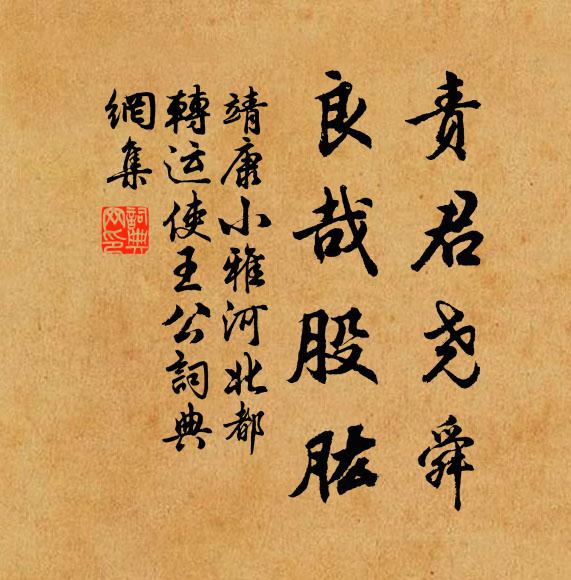 责君尧舜
良哉股肱
靖康小雅河北都
轉运使王公詞典
網集
詞典网印